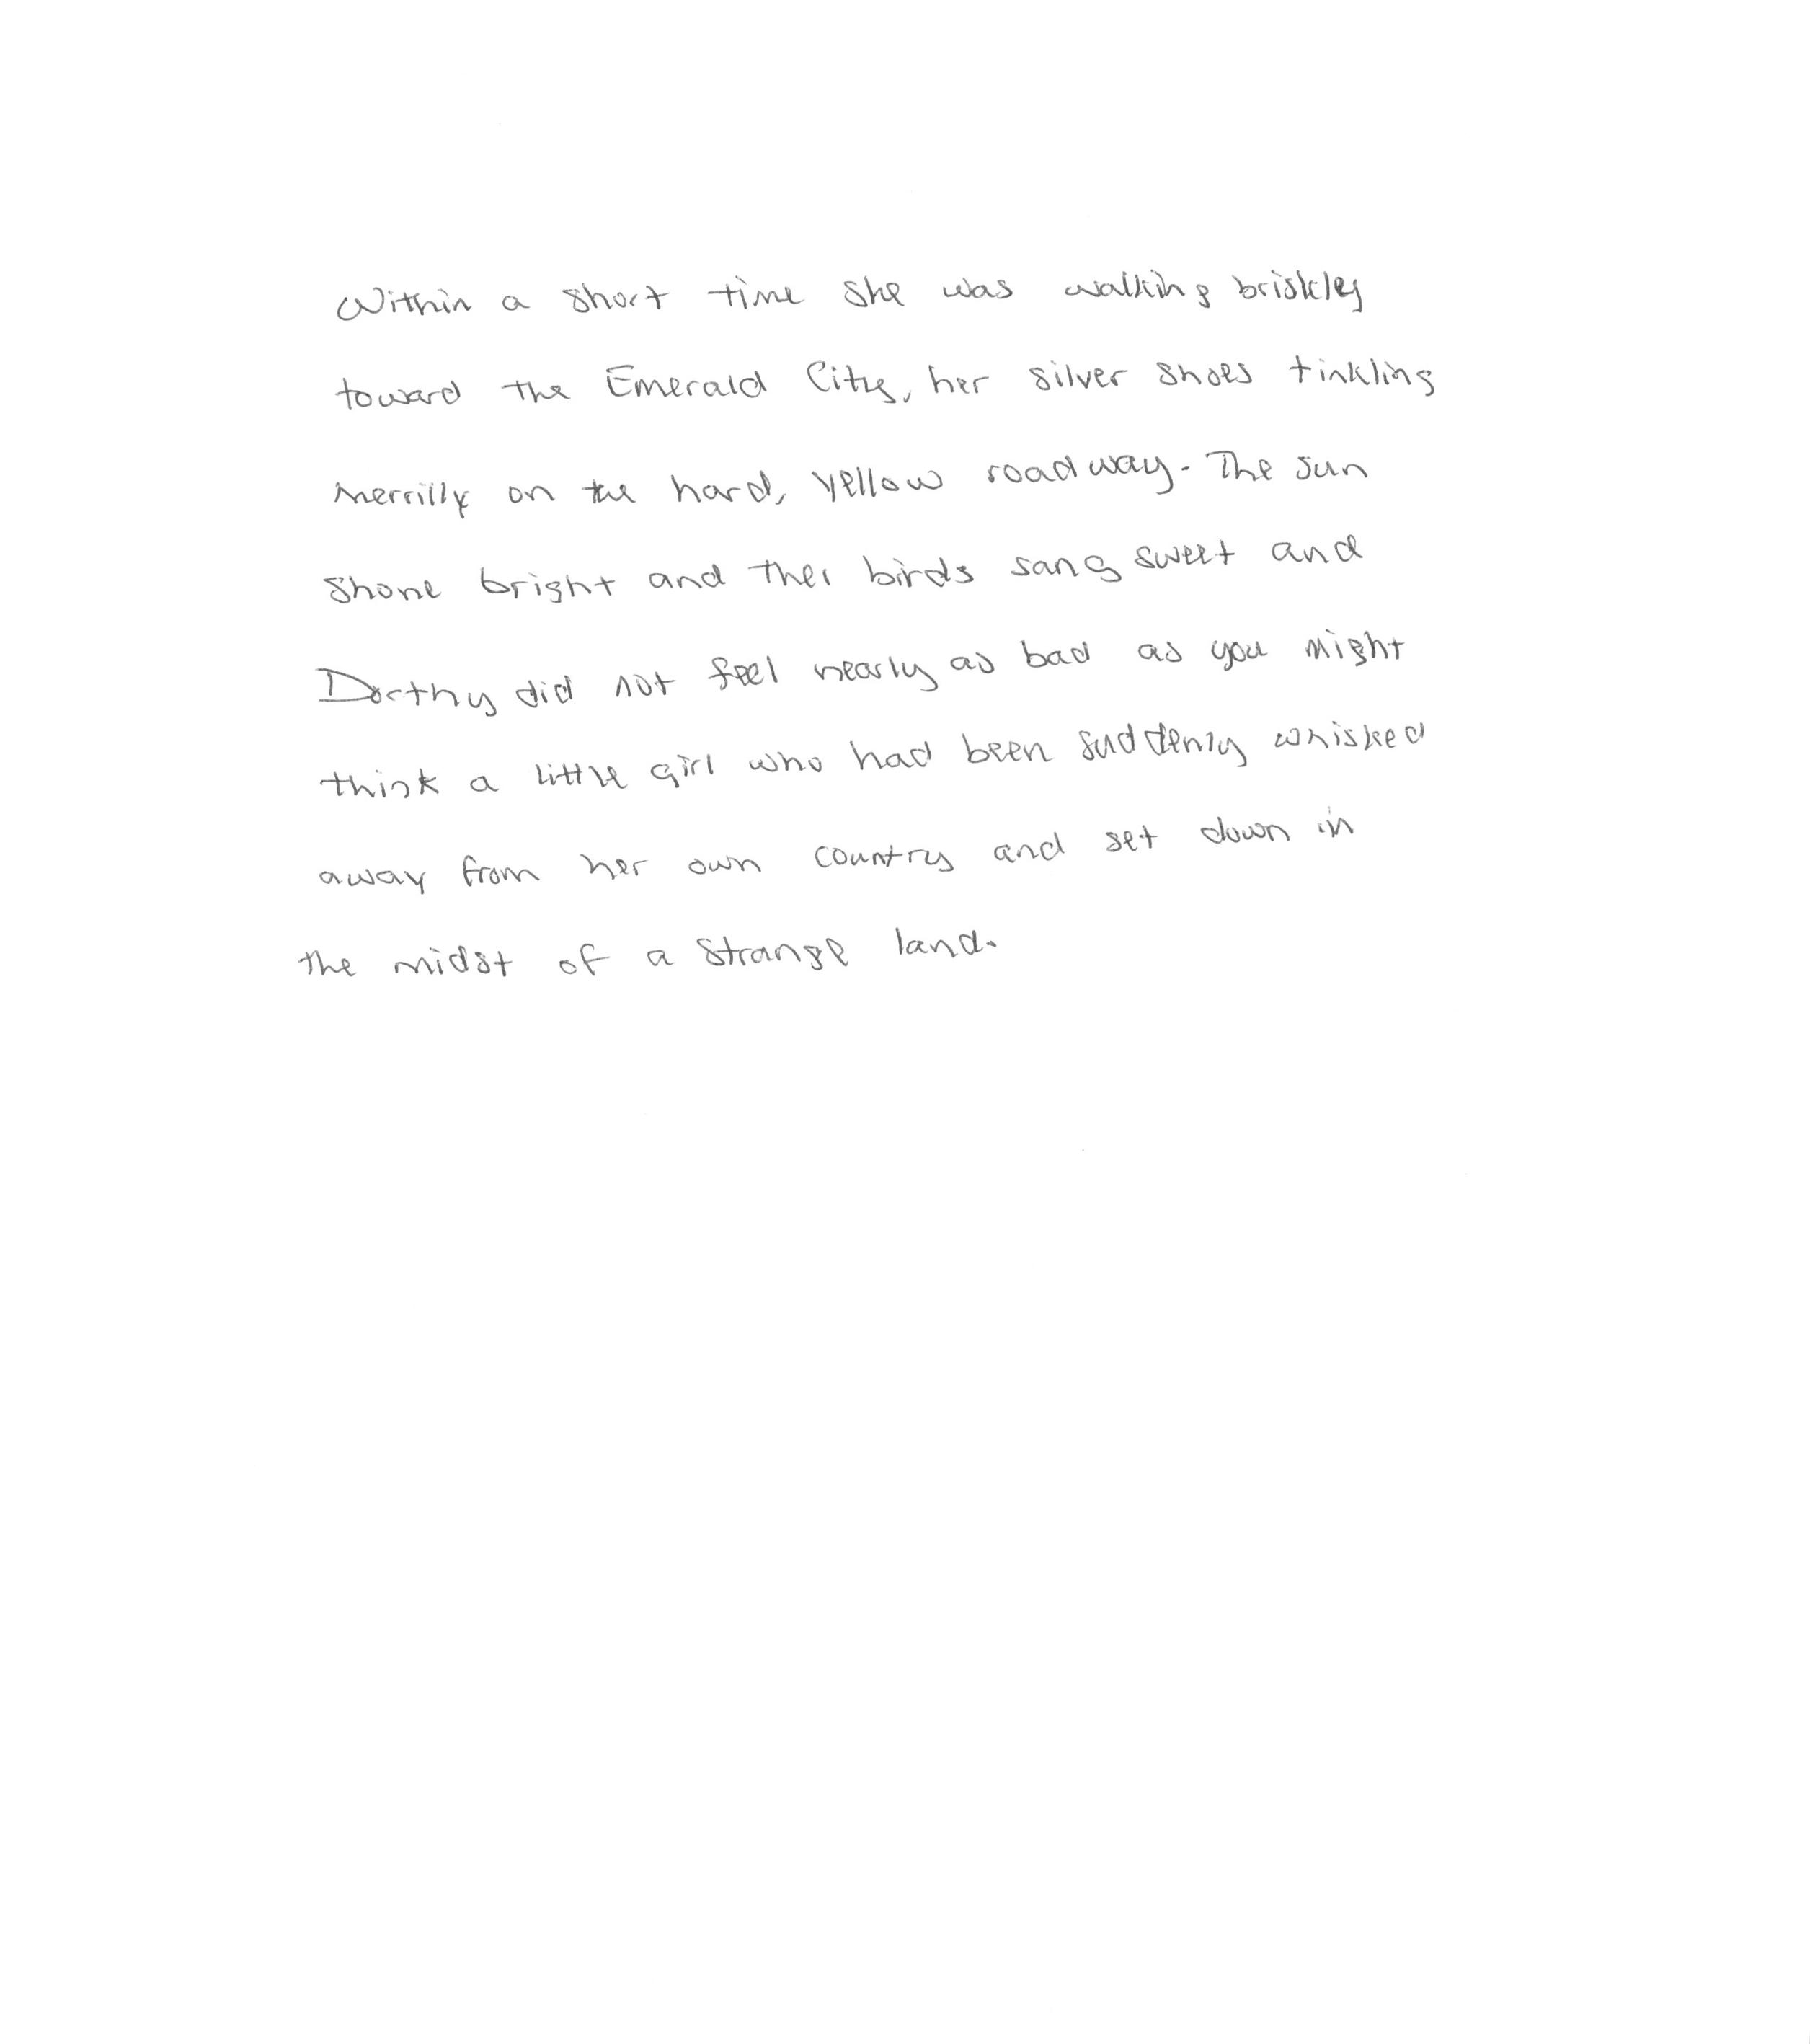 Within a short time she was walking briskley
toward the Emerald City, her silver shoes tinkling
merrilly on the hard, yellow roadway. The sun
shone bright and thei birds sang sweet and
Dorthy did not feel nearly as bad as you might
think a little girl who had been suddenly whisked
away from her own country and set down in
the midst of a strange land.